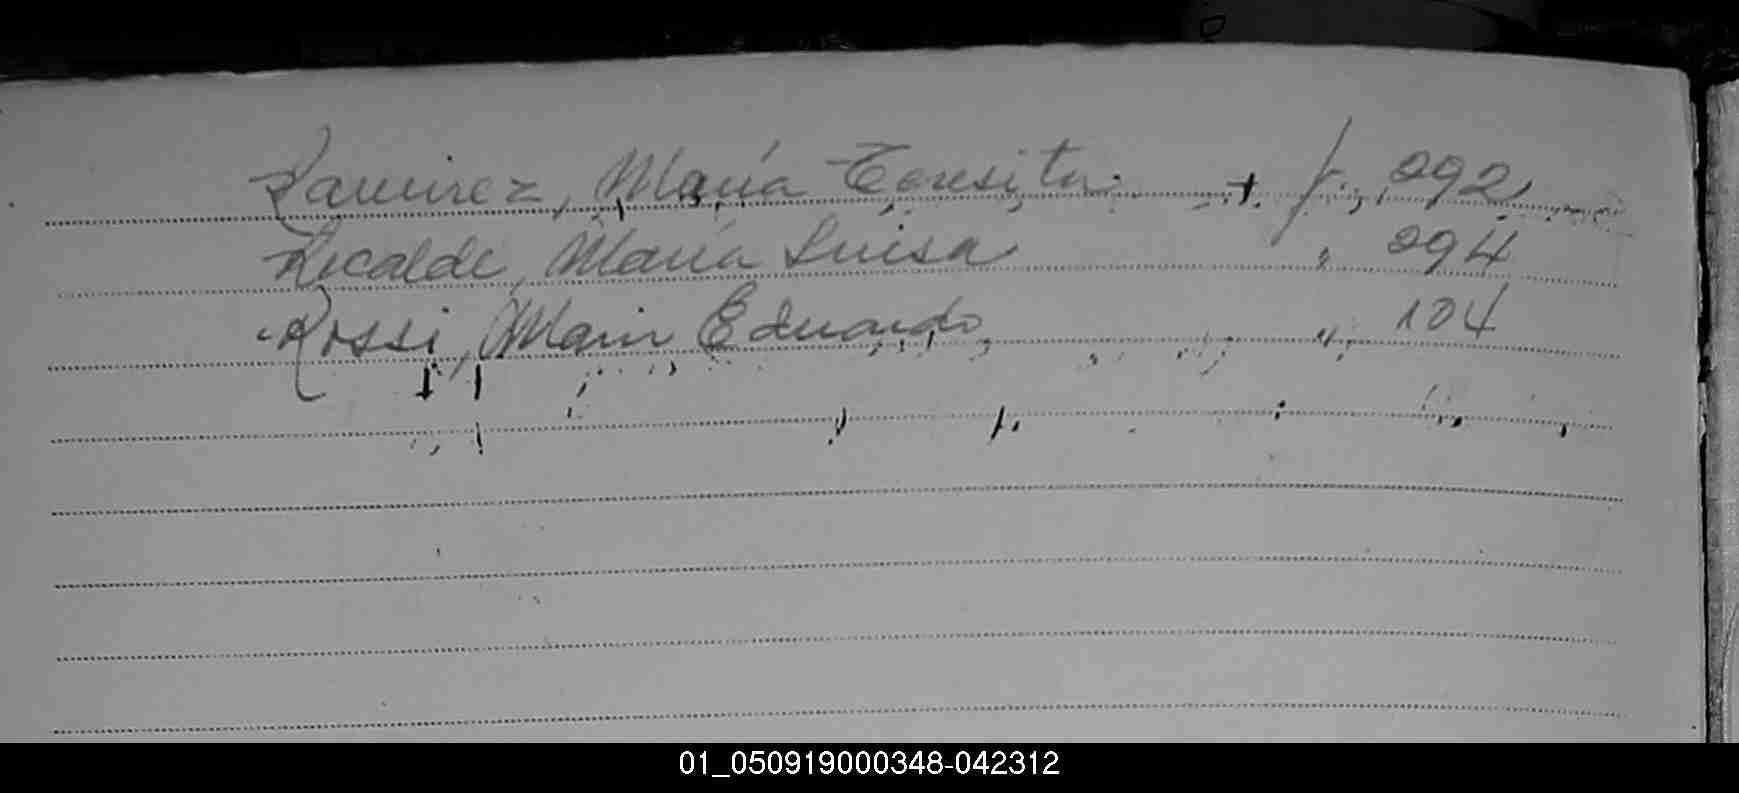 Ramirez, María Teresita f. 292
Recalde, María Luisa " 294
Rossi, Mario Eduardo " 104
01_050919000348-042312